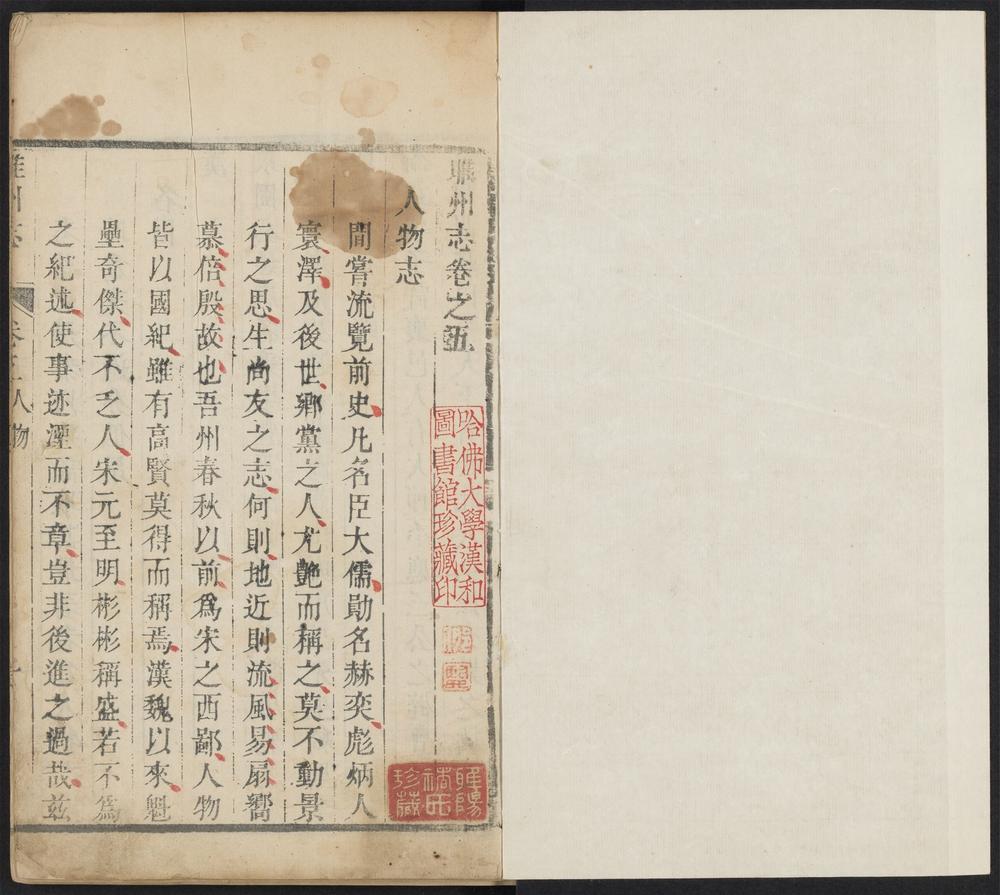 睢州志卷之五
人物志
間嘗流覽前史凡名臣大儒勛名赫奕彪炳人
寰澤及後世鄉黨之人尤艷而稱之莫不動景
行之思生尚友之志何則地近則流風易扇響
慕倍殷故也吾州春秋以前爲宋之西鄙人物
皆以國紀雖有高賢莫得而稱焉漢魏以來魁
壘奇傑代不乏人宋元至明彬彬稱盛若不爲
之紀述使事迹湮而不章豈非後進之過哉茲
睢州志
卷五人物
哈佛大學漢和
圖書館珍藏印
睢陽
褚氏
珍藏